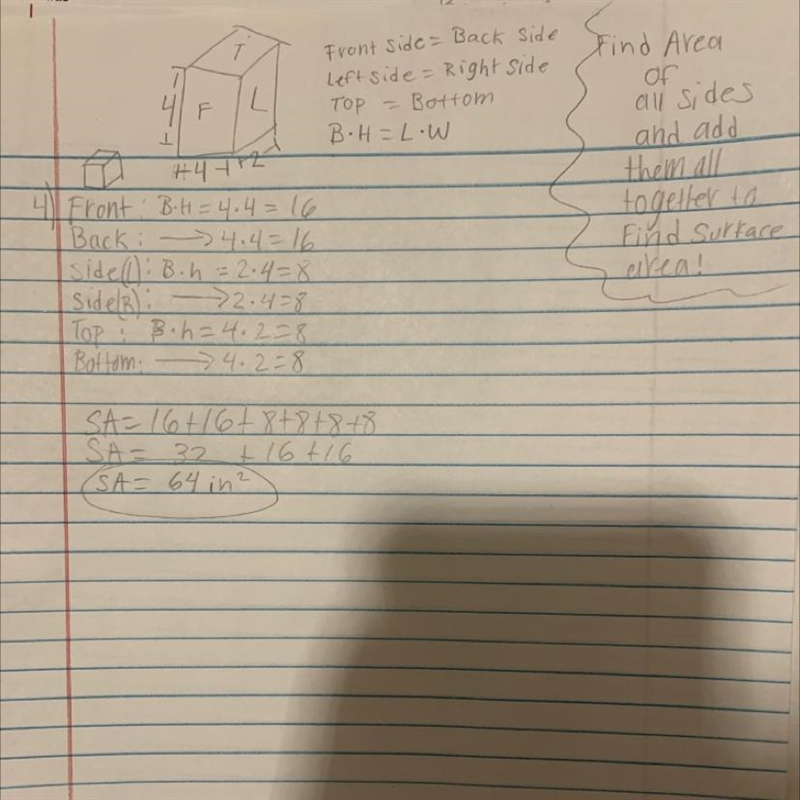 T
4
F
L
4
2
Front side = Back side
Left side = Right side
Top = Bottom
B·H = L·W
Find Area
of
all sides
and add
them all
together to
Find Surface
area!
4) Front: B·H = 4·4 = 16
Back: → 4·4 = 16
side(l): B·h = 2·4 = 8
side(R): → 2·4 = 8
Top: B·h = 4·2 = 8
Bottom: → 4·2 = 8
SA = 16+16+8+8+8+8
SA = 32 +16+16
SA = 64 in²